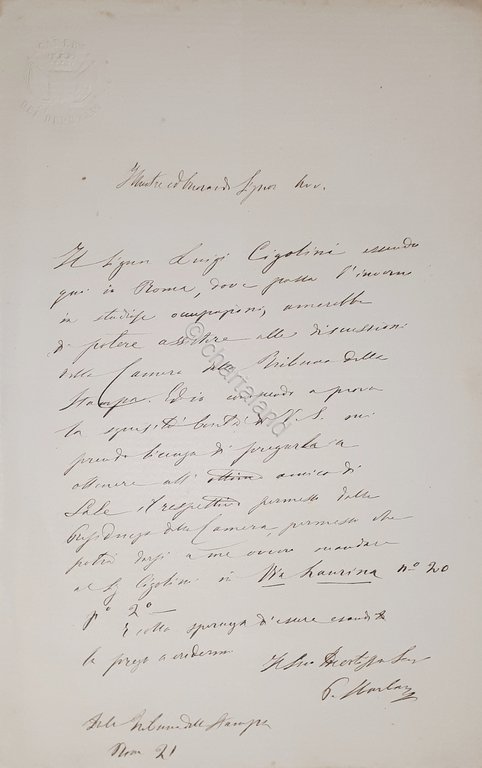 CAMERA
DEI DEPUTATI
Illustre ed Onorando Signor Avv.
Il Signor Luigi Cigolini essendo
qui in Roma, dove passa l'inverno
in studiose occupazioni, amerebbe
di potere assistere alle discussioni
della Camera dalla Tribuna della
Stampa. Ed io a prova
la squisita bontà di V. S. mi
prendo licenza di pregarla a
ottenere all' ottimo amico di
il respettivo permesso dalla
Presidenza della Camera, permesso che
potrà darsi a me ovvero mandare
al Sig Cigolini in Via Laurina nº 20
pº 2º
E colla speranza d'essere esaudito
la prego a credermi
Il Suo
P.
Dalla Tribuna della Stampa
21
© chartaland